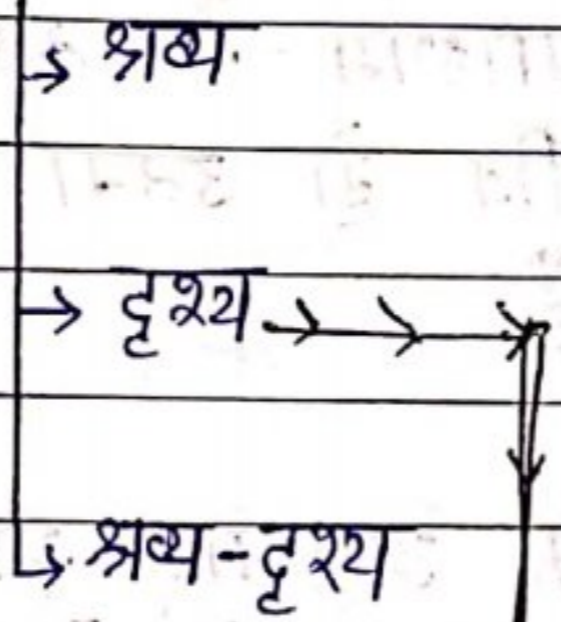 → श्रव्य.
→ दृश्य
→ श्रव्य-दृश्य